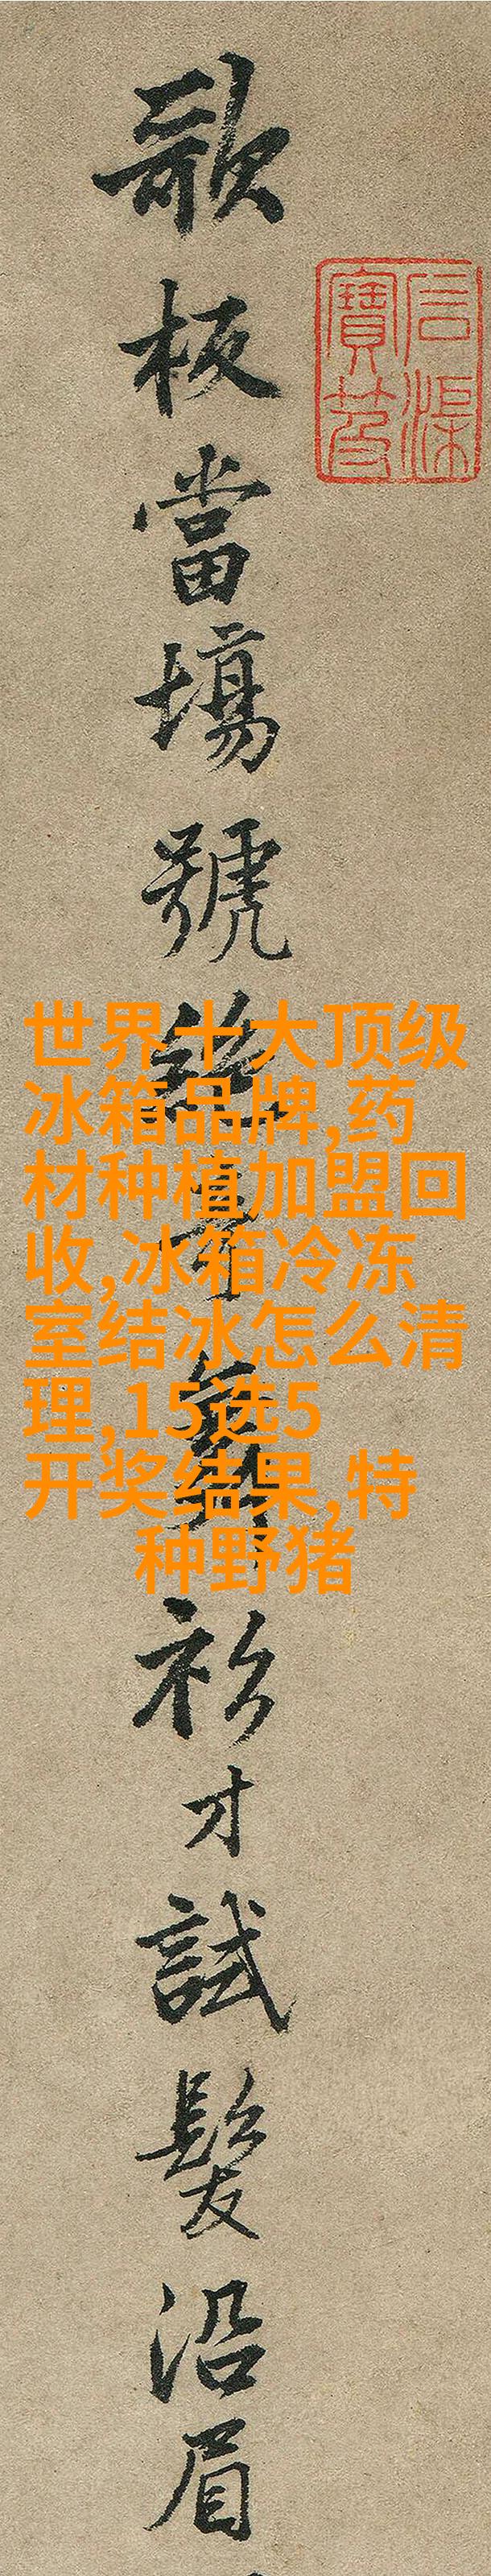 歌板當場號絕奇舞衫才試髮沿眉
石渠
寶笈
世界十大顶级
冰箱品牌,药
材种植加盟回
收,冰箱冷冻
室结冰怎么清
理,15选5
开奖结果,特
种野猪